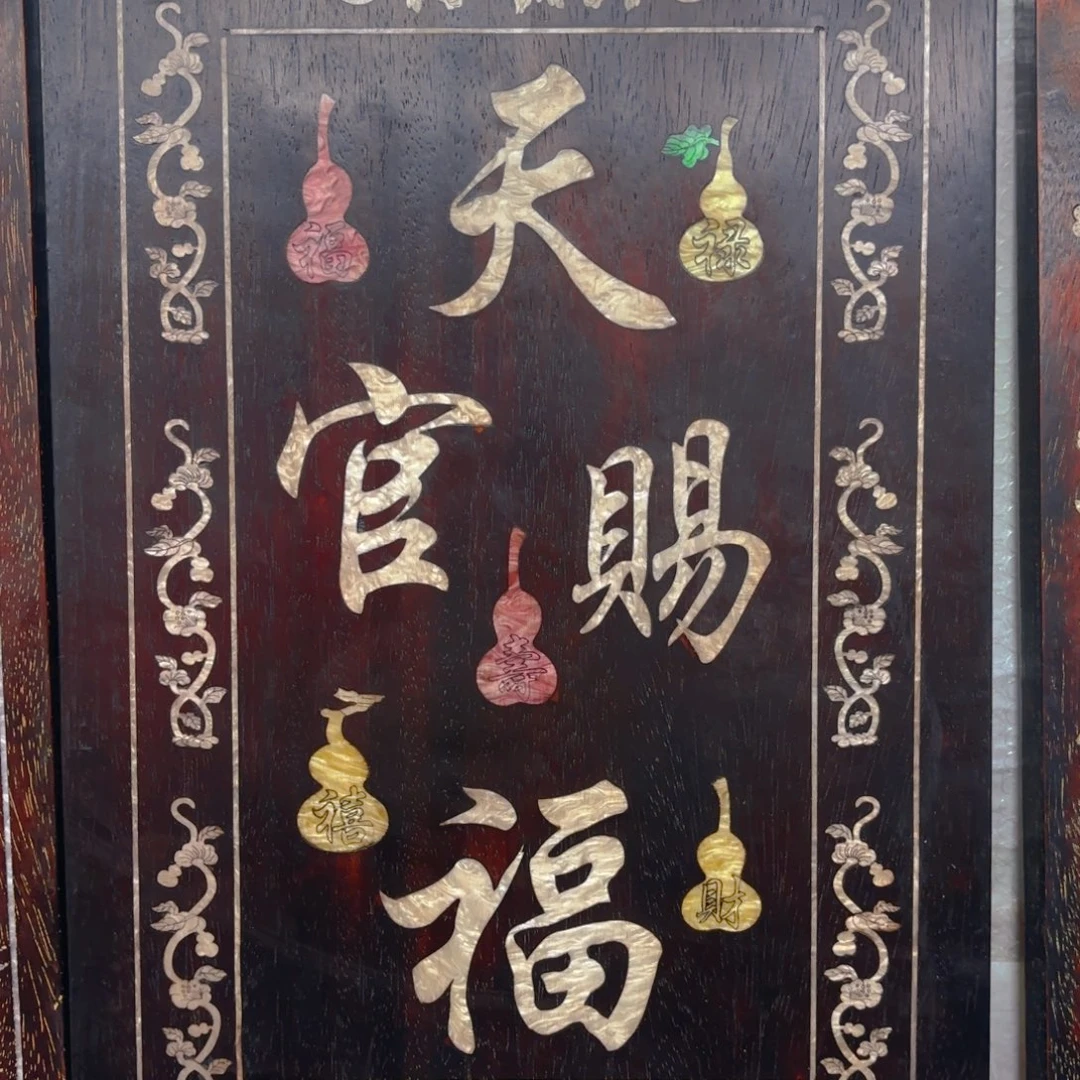 天
官賜
福
福
禄
壽
禧
財